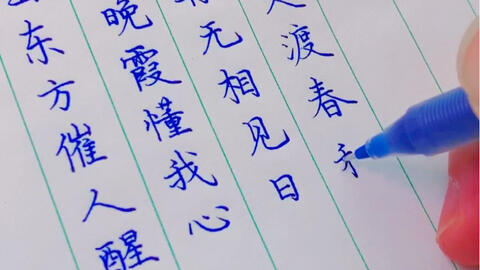 东方催人醒
晚霞懂我心
无相见日
渡春